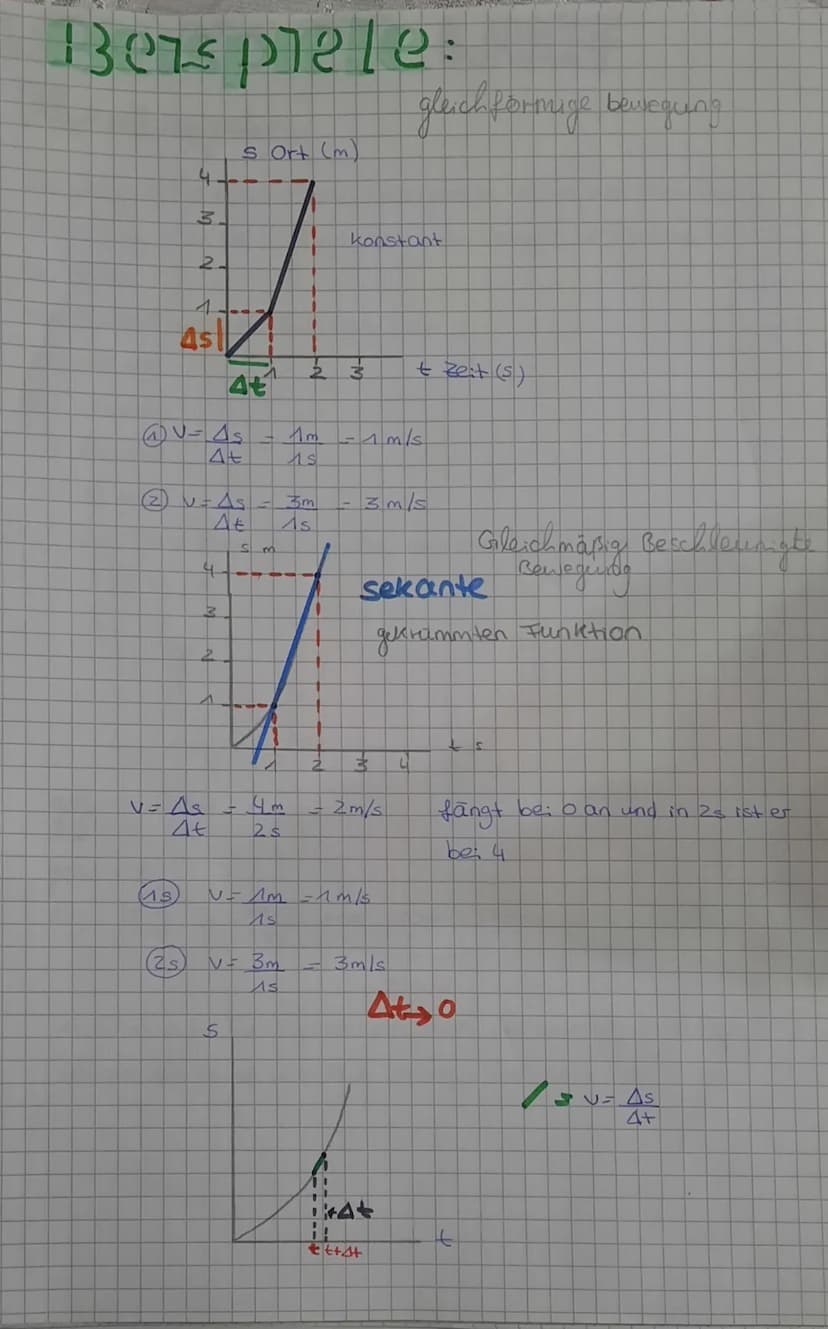 Beispiele:
gleichförmige bewegung
s Ort (m)
4
3
konstant
2
1
Δs
1 2 3
t Zeit (s)
Δt
① v = Δs/Δt = 1m/1s = 1 m/s
② v = Δs/Δt = 3m/1s = 3 m/s
Gleichmäßig Beschleunigte
Bewegung
s m
4
sekante
3
gekrümmten Funktion
2
1
t s
1 2 3 4
v = Δs/Δt = 4m/2s = 2m/s
fängt bei 0 an und in 2s ist er
bei 4
1s v = 1m/1s = 1m/s
2s v = 3m/1s = 3m/s
Δt→0
s
v = Δs/Δt
Δt
t
t t+Δt